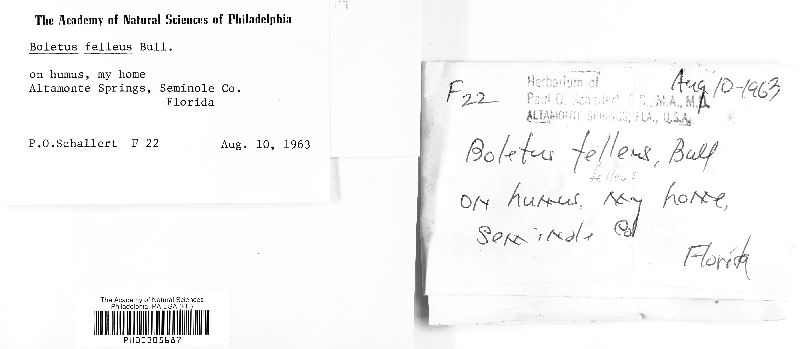 The Academy of Natural Sciences of Philadelphia
Boletus felleus Bull.
on humus, my home
Altamonte Springs, Seminole Co.
Florida
P.O.Schallert F 22 Aug. 10, 1963
The Academy of Natural Sciences
Philadelphia, PA USA (PH)
PH00305687
F22
Aug 10-1963
Herbarium of
Paul O. Schallert, M.A., M.D.
ALTAMONTE SPRINGS, FLA., U.S.A.
Boletus felleus, Bull
felleus
on humus, my home,
Seminole Co
Florida